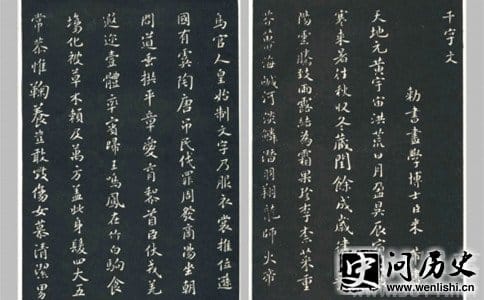 千字文
勅書畫學博士臣米
天地元黄宇宙洪荒日月盈昃辰
寒來暑往秋收冬藏閏餘成歲律
陽雲騰致雨露結為霜果珍李柰菜重
芥薑海鹹河淡鱗潛羽翔龍師火帝
鳥官人皇始制文字乃服衣裳推位遜
國有虞陶唐弔民伐罪周發商湯坐朝
問道垂拱平章愛育黎首臣伏戎羌
遐迩壹體率賓歸王鳴鳳在竹白駒食
場化被草木賴及萬方盖此身髮四大五
常恭惟鞠養豈敢毀傷女慕清潔男
史 问历史
www.wenlishi.cn